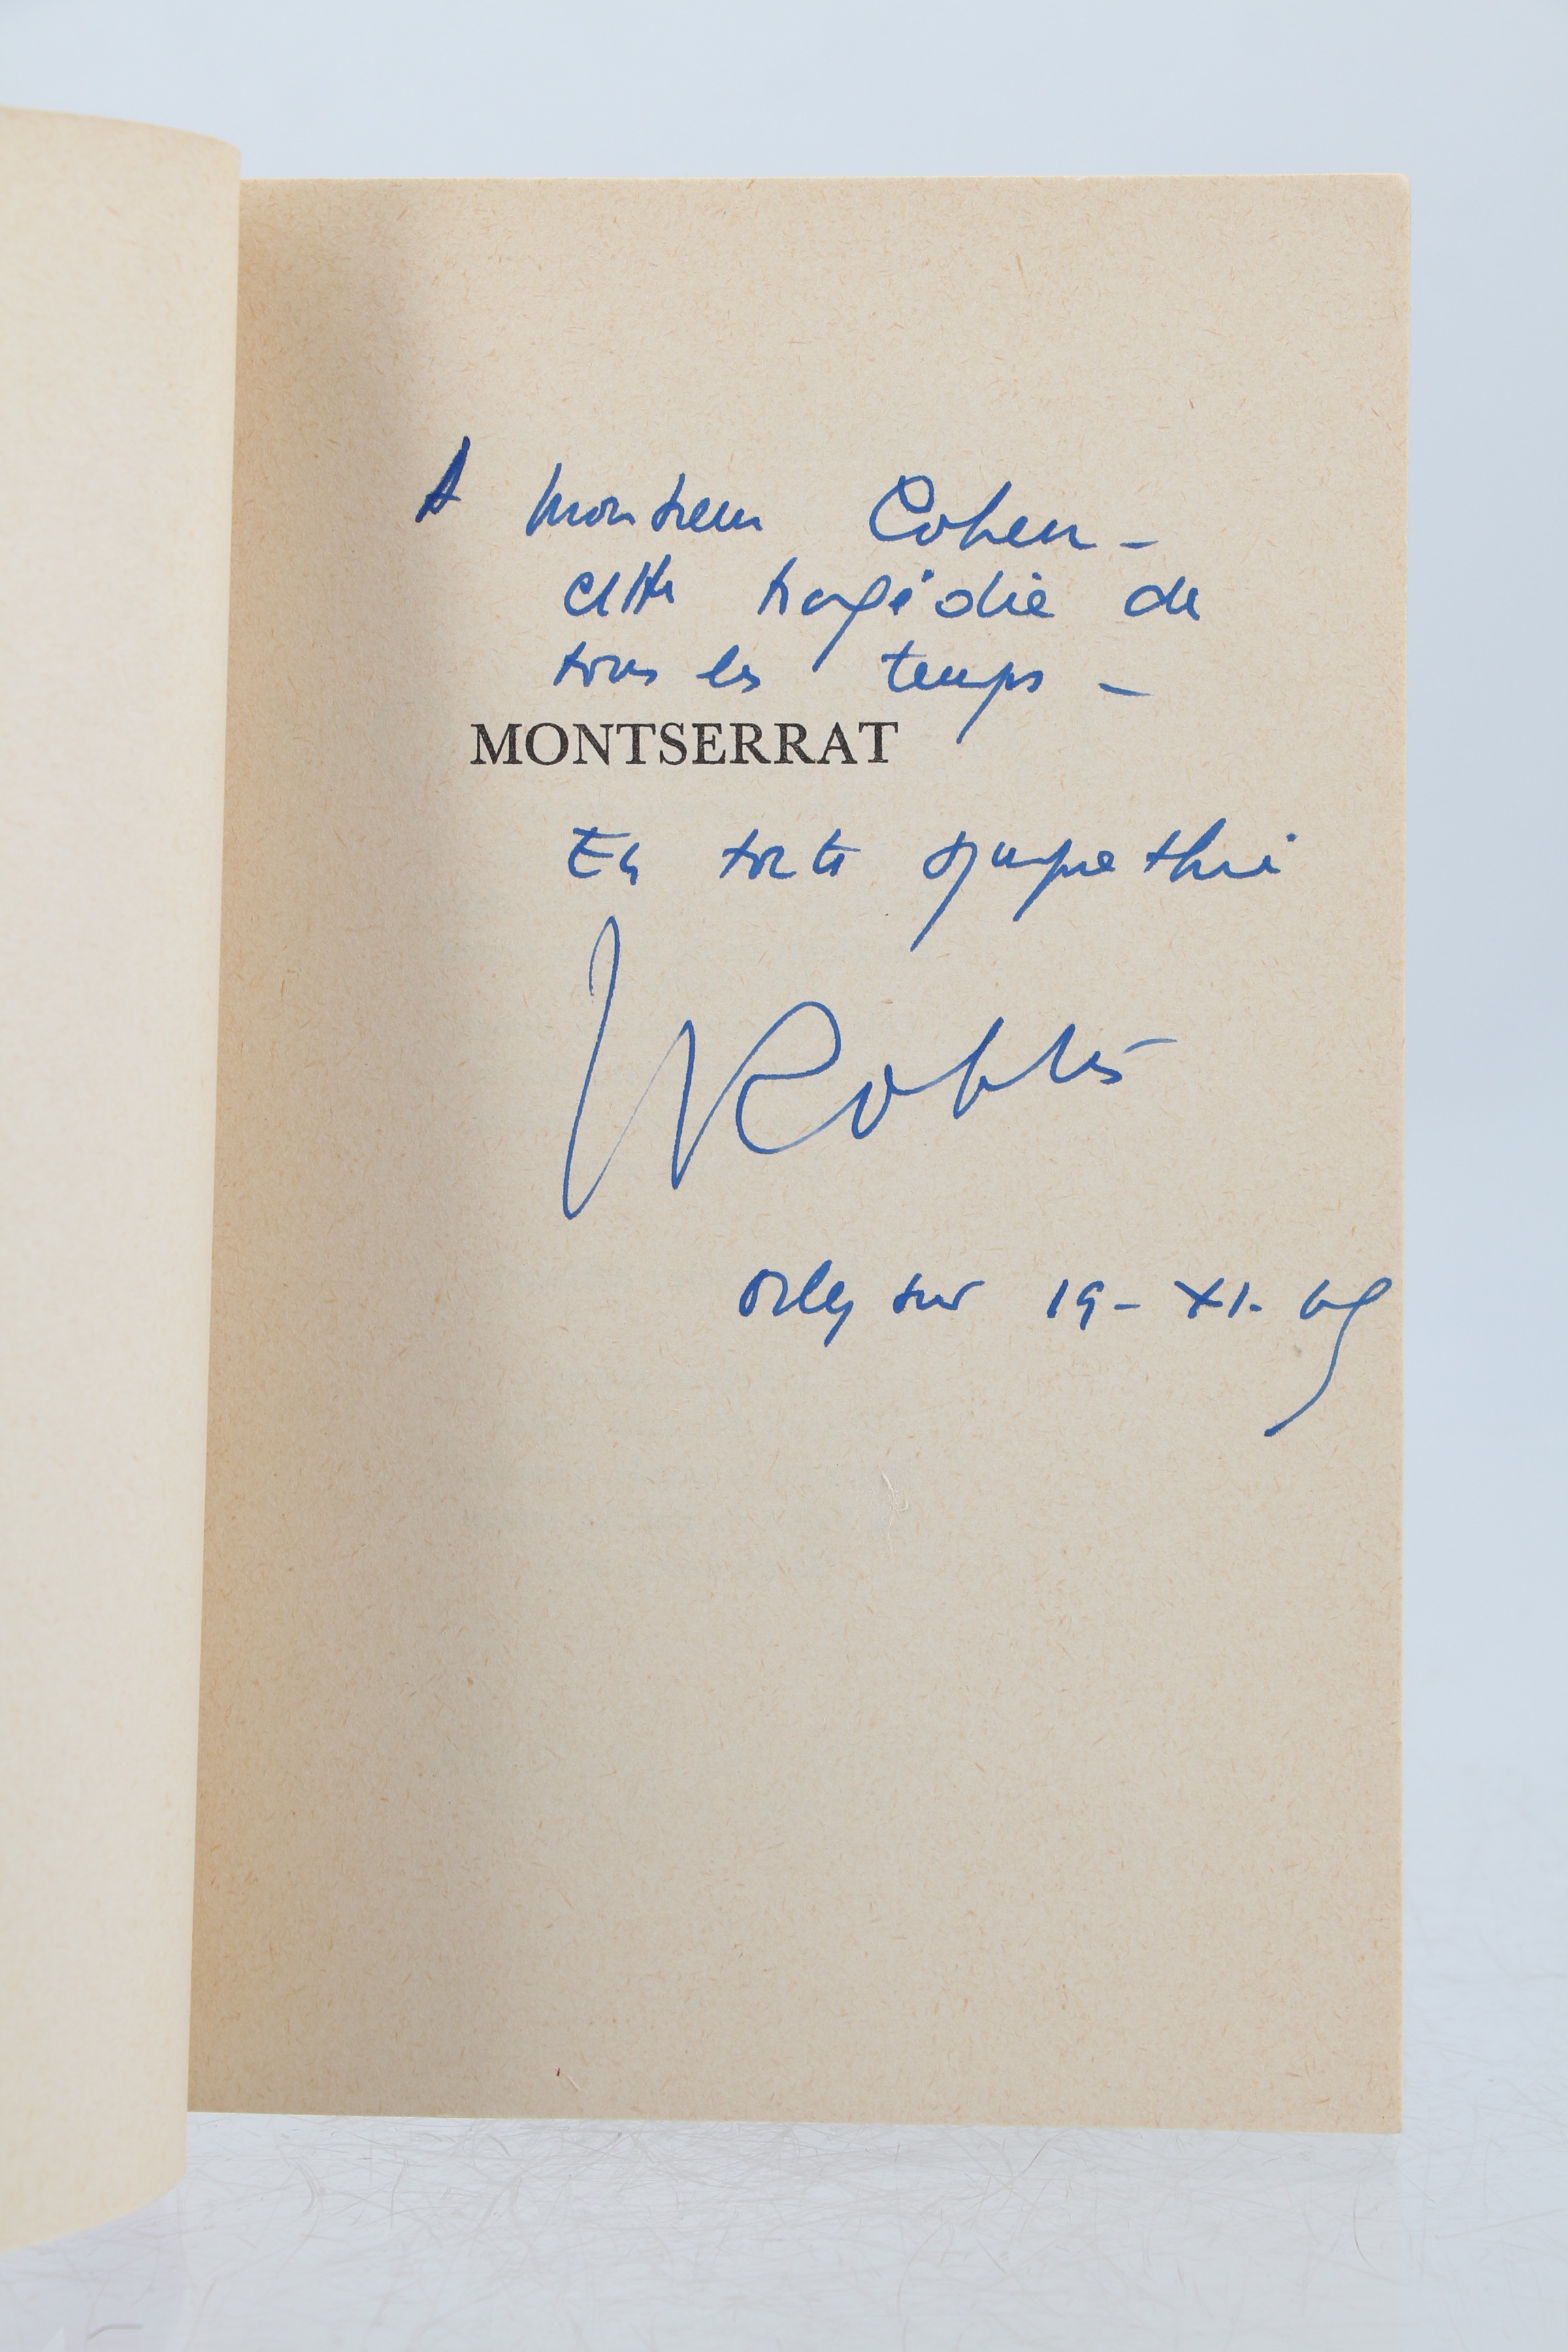 A Monsieur Cohen -
cette tragédie de
tous les temps -
MONTSERRAT
En toute sympathie
Roblès
Orly sur 19 - XI. 69